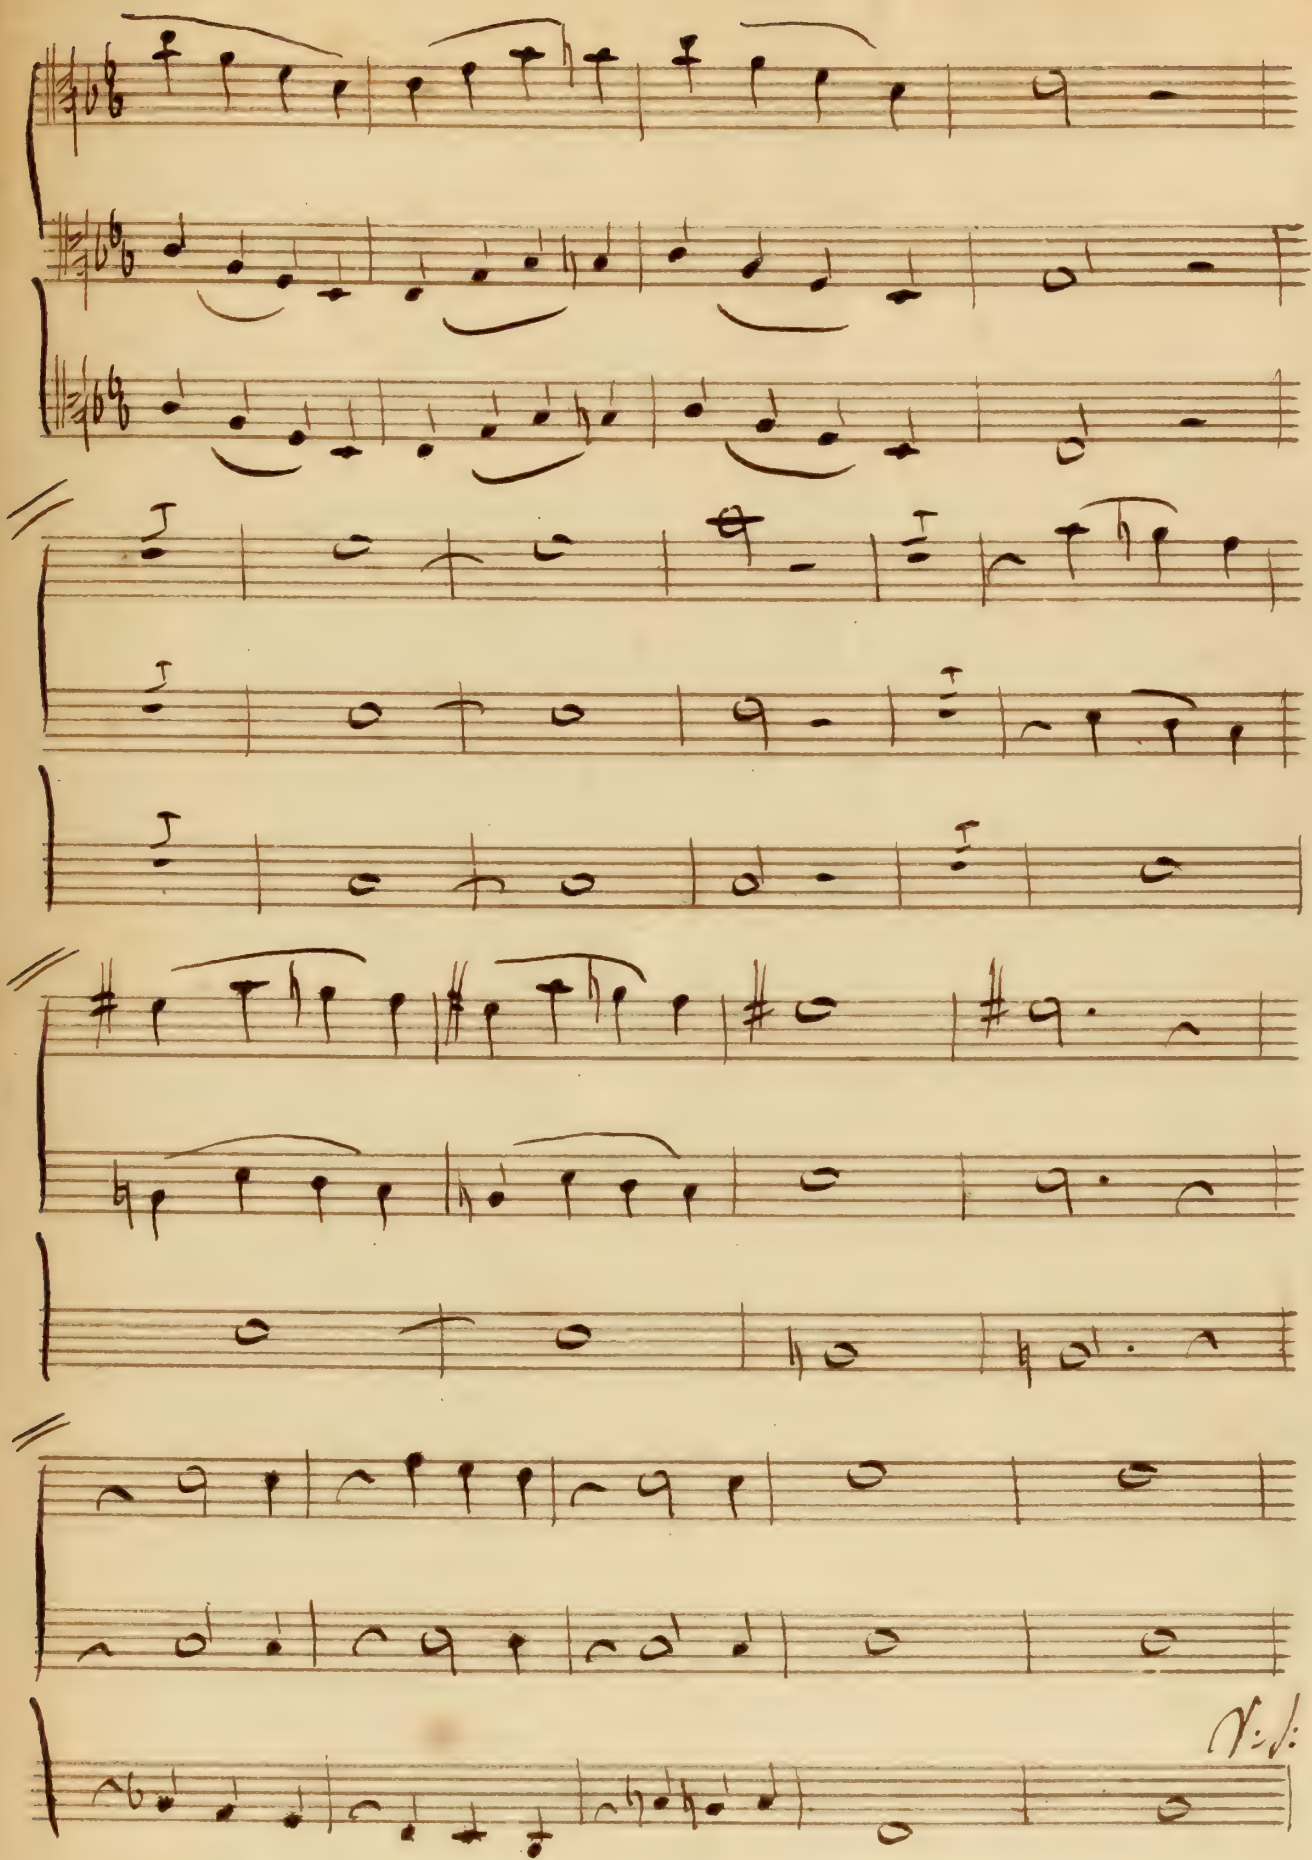 V: S: